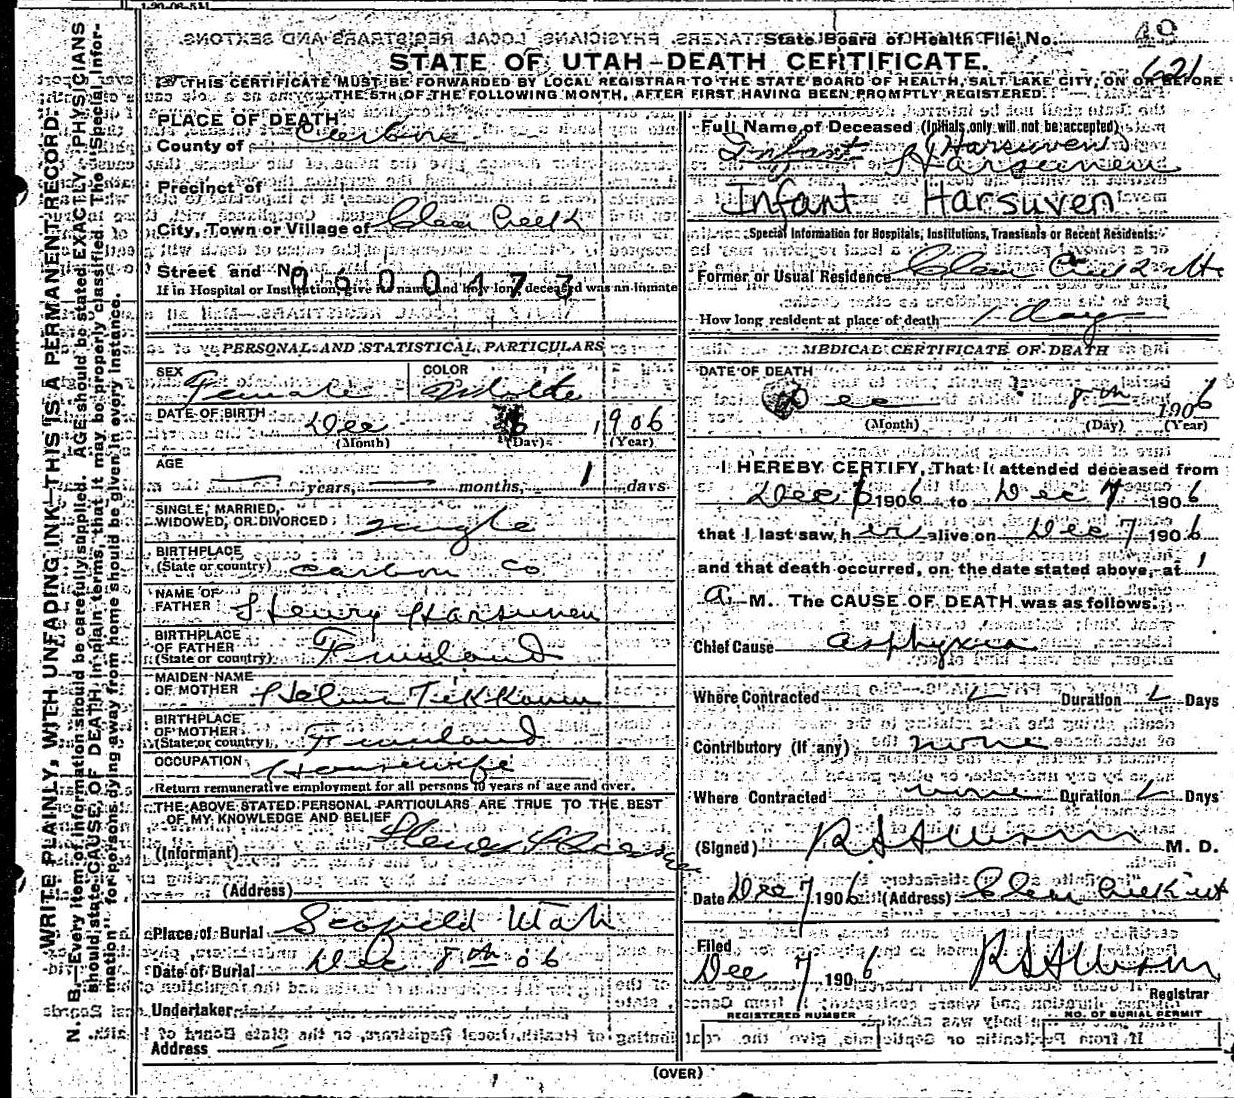 1-20-06-5M
State Board of Health File No. 40
STATE OF UTAH—DEATH CERTIFICATE.
621
THIS CERTIFICATE MUST BE FORWARDED BY LOCAL REGISTRAR TO THE STATE BOARD OF HEALTH, SALT LAKE CITY, ON OR BEFORE
THE 5TH OF THE FOLLOWING MONTH, AFTER FIRST HAVING BEEN PROMPTLY REGISTERED.
WRITE PLAINLY, WITH UNFADING INK—THIS IS A PERMANENT RECORD.
N. B.—Every item of information should be carefully supplied. AGE should be stated EXACTLY. PHYSICIANS
should state CAUSE OF DEATH in plain terms, that it may be properly classified. The "Special Infor-
mation" for persons dying away from home should be given in every instance.
PLACE OF DEATH
County of Carbon
Precinct of
City, Town or Village of Clear Creek
Street and No.
0600473
If in Hospital or Institution, give its name, and how long deceased was an inmate
PERSONAL AND STATISTICAL PARTICULARS
SEX Female COLOR White
DATE OF BIRTH Dec 1906
(Month) (Day) (Year)
AGE — years, — months, 1 days
SINGLE, MARRIED,
WIDOWED, OR DIVORCED single
BIRTHPLACE
(State or country) Carbon Co
NAME OF
FATHER Henry Harsuven
BIRTHPLACE
OF FATHER
(State or country) Finnland
MAIDEN NAME
OF MOTHER Helma Tikkanen
BIRTHPLACE
OF MOTHER
(State or country) Finnland
OCCUPATION Housewife
Return remunerative employment for all persons 10 years of age and over.
THE ABOVE STATED PERSONAL PARTICULARS ARE TRUE TO THE BEST
OF MY KNOWLEDGE AND BELIEF
(Informant) Henry
(Address)
Place of Burial Scofield Utah
Date of Burial Dec 8th 06
Undertaker
Address
Full Name of Deceased (Initials only will not be accepted)
Infant Harsuven
Harsuven
Infant Harsuven
Special Information for Hospitals, Institutions, Transients or Recent Residents:
Former or Usual Residence Clear Creek Utah
How long resident at place of death 1 day
MEDICAL CERTIFICATE OF DEATH
DATE OF DEATH
Dec 8th 1906
(Month) (Day) (Year)
I HEREBY CERTIFY, That I attended deceased from
Dec 6 1906 to Dec 7 1906
that I last saw her alive on Dec 7 1906
and that death occurred, on the date stated above, at 1
A. M. The CAUSE OF DEATH was as follows:
Chief Cause asphyxia
Where Contracted Duration Days
Contributory (If any) none
Where Contracted none Duration Days
(Signed) M. D.
Date Dec 7 1906 (Address) Clear Creek Ut
Filed
Dec 7 1906
Registrar
REGISTERED NUMBER NO. OF BURIAL PERMIT
(OVER)